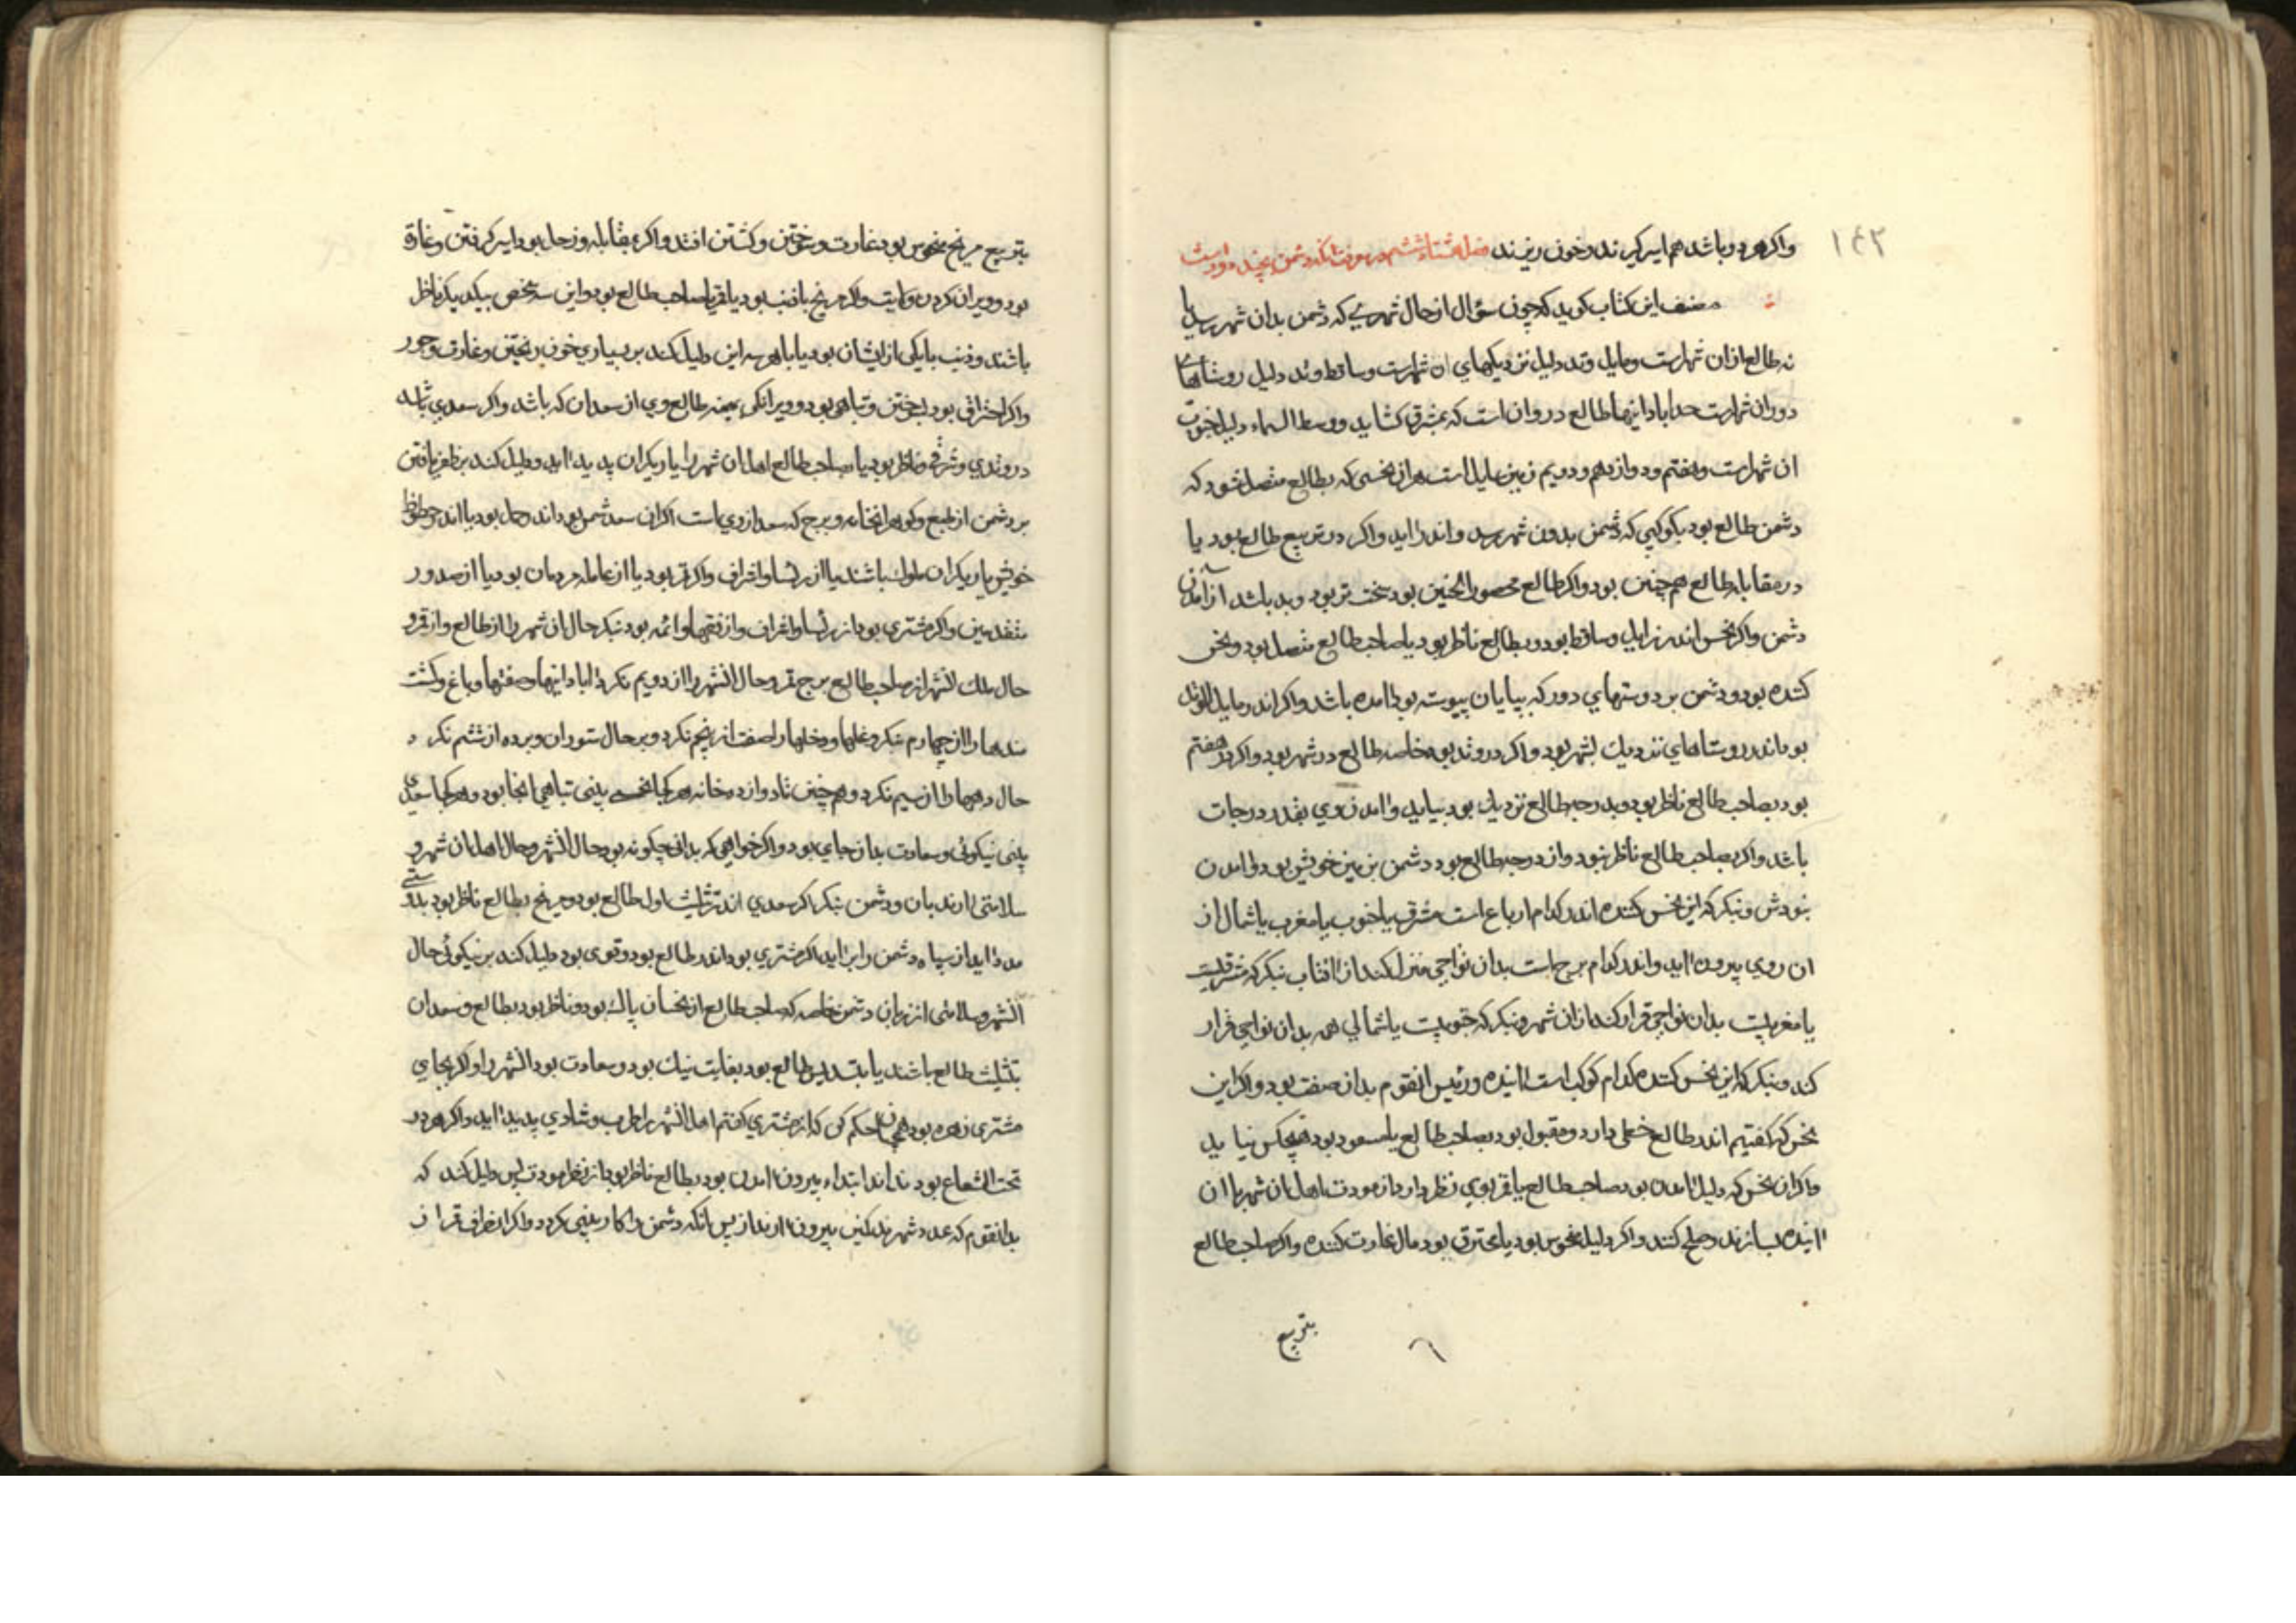 ۱۴۲
واکر هر دو باشد هم اسیر کیرند و خون ریزند فصل هشتاد ششم در معرفت انکه دشمن بچند
مصنف این کتاب کوید که چون سؤال از حال شهری که دشمن بدان شهر رسد یا
نه طالع ازان شهرست ومایل وتد دلیل نزدیکهای ان شهرست وساقط وتد دلیل روستاهای
دوران شهرست طالع در وان است که بمشرق کشاید ووسط السماء دلیل
ان شهرست وهفتم ودوازدهم ودویم زمین است هران نحسی که بطالع متصل شود که
دشمن طالع بود بکوکبی که دشمن بدون شهر رسد واندر اید واکر در تربیع طالع بود یا
در مقابله طالع هم چنین بود واکر طالع محصور النحسین بود سخت تر بود وبد باشد از آمدن
دشمن واکر نحس اندر زایل وساقط بود وبطالع ناظر بود یا صاحب طالع متصل بود ونحس
کننده بود ودشمن بر دوستهای دور که بپایان پیوسته بود امده باشد واکر اندر مایل الوتد
بود اندر روستاهای نزدیک بشهر بود واکر در وتد بود خاصه طالع در شهر بود واکر در هفتم
بود بصاحب طالع ناظر بود وبدرجه طالع نزدیک بود بیاید وامدن وی بقدر درجات
باشد واکر بصاحب طالع ناظر نبود واز درجه طالع بود دشمن بزمین خویش بود وامدن
نبودش وبنکر که این نحس کننده اندر کدام ارباع است مشرق یا جنوب یا مغرب یا شمال از
ان روی بیرون اید واندر کدام برج است بدان نواحی منزل کند از افتاب بنکر که شرقیست
یا مغربیست بدان نواحی قرار کند ازان شهر وبنکر که جنوبیست یا شمالی هم بدان نواحی قرار
کند وبنکر که این نحس کننده کدام کوکب است اینده ورئیس انقوم بدان صفت بود واکر این
نحس که کفتیم اندر طالع خطی دارد ومقبول بود بصاحب طالع یا مسعود بود هیچکس نیاید
واکر ان نحس که دلیل امدن بود صاحب طالع یا قمر بوی نظر دارد از مودت اهل ان شهر با ان
اینده بسازند وصلح کنند واکر دلیل منحوس بود یا محترق بود مال غارت کننده واکر صاحب طالع
بتربیع
بتربیع مریخ منحوس بود غارت وسوختن وکشتن افتد واکر بمقابله زحل بود اسیر کرفتن وغارة
بود وویران کردن ولایت واکر مریخ با ذنب بود یا قمر یا صاحب طالع بود واین سه نحس بیکدیکر ناظر
باشند وذنب با یکی از ایشان بود یا با هر سه این دلیل کند بر بسیاری خون ریختن وغارت وجور
واکر احتراق بود سوختن وتباهی بود وویرانکی طالع وی از سعدان که باشد واکر سعدی باشد
در وتدی وشرقی وناظر بود یا صاحب طالع اهل ان شهر را یاریکران پدید اید ودلیل کند بر ظفر یافتن
بر دشمن از طبع وکوهر انخانه وبرج که سعد از وی است اکر ان سعد شمس بود اندر حمل بود یا اندر حظوظ
خویش یاریکران ملوک باشند یا از رؤسا واشراف واکر قمر بود یا از عامه مردمان بود یا از صدور
متقدمین واکر مشتری بود از رؤسا واشراف واز فقها وائمه بود بنکر حال ان شهر را از طالع واز قمر و
حال ملک انشهر از صاحب طالع برج قمر وحال انشهر را از دویم نکر وابادانیها وباغ وکشت
مندها را از چهارم بنکر وغلها ودخلها از پنجم نکرد وبر حال ستوران وبرده از ششم نکرد
حال دهها را از سیم نکرد وهم چنین تا دوازده خانه هر کجا نحس بینی تباهی انجا بود وهر کجا سعدی
بینی نیکوئی وسعادت بدان جای بود واکر خواهی که بدانی چکونه بود حال انشهر وحال اهل ان شهر و
سلامتی ودشمن بنکر اکر سعدی اندر تثلیث اول طالع بود ومریخ بطالع ناظر بود بدوستی
مدد اید از سپاه دشمن اکر مشتری بود اندر طالع بود وقوی بود دلیل کند بر نیکوئی حال
انشهر وسلامتی از زیان دشمن خاصه که صاحب طالع از نحسان پاک بود وناظر بود بطالع وسعدان
بتثلیث طالع باشند یا بتسدیس طالع بود بغایت نیک بود وسعادت بود انشهر را واکر بجای
مشتری زهره بود همچنان حکم کن که از مشتری کفتم اهل انشهر را طرب وشادی پدید اید واکر هر دو
تحت الشعاع بودند ابتداء بیرون امدن بود بطالع ناظر بود از نظر مودت پس دلیل کند که
بدانقوم که عدد شهر بیرون ارند از پس انکه دشمن را کار کردد واکر قران